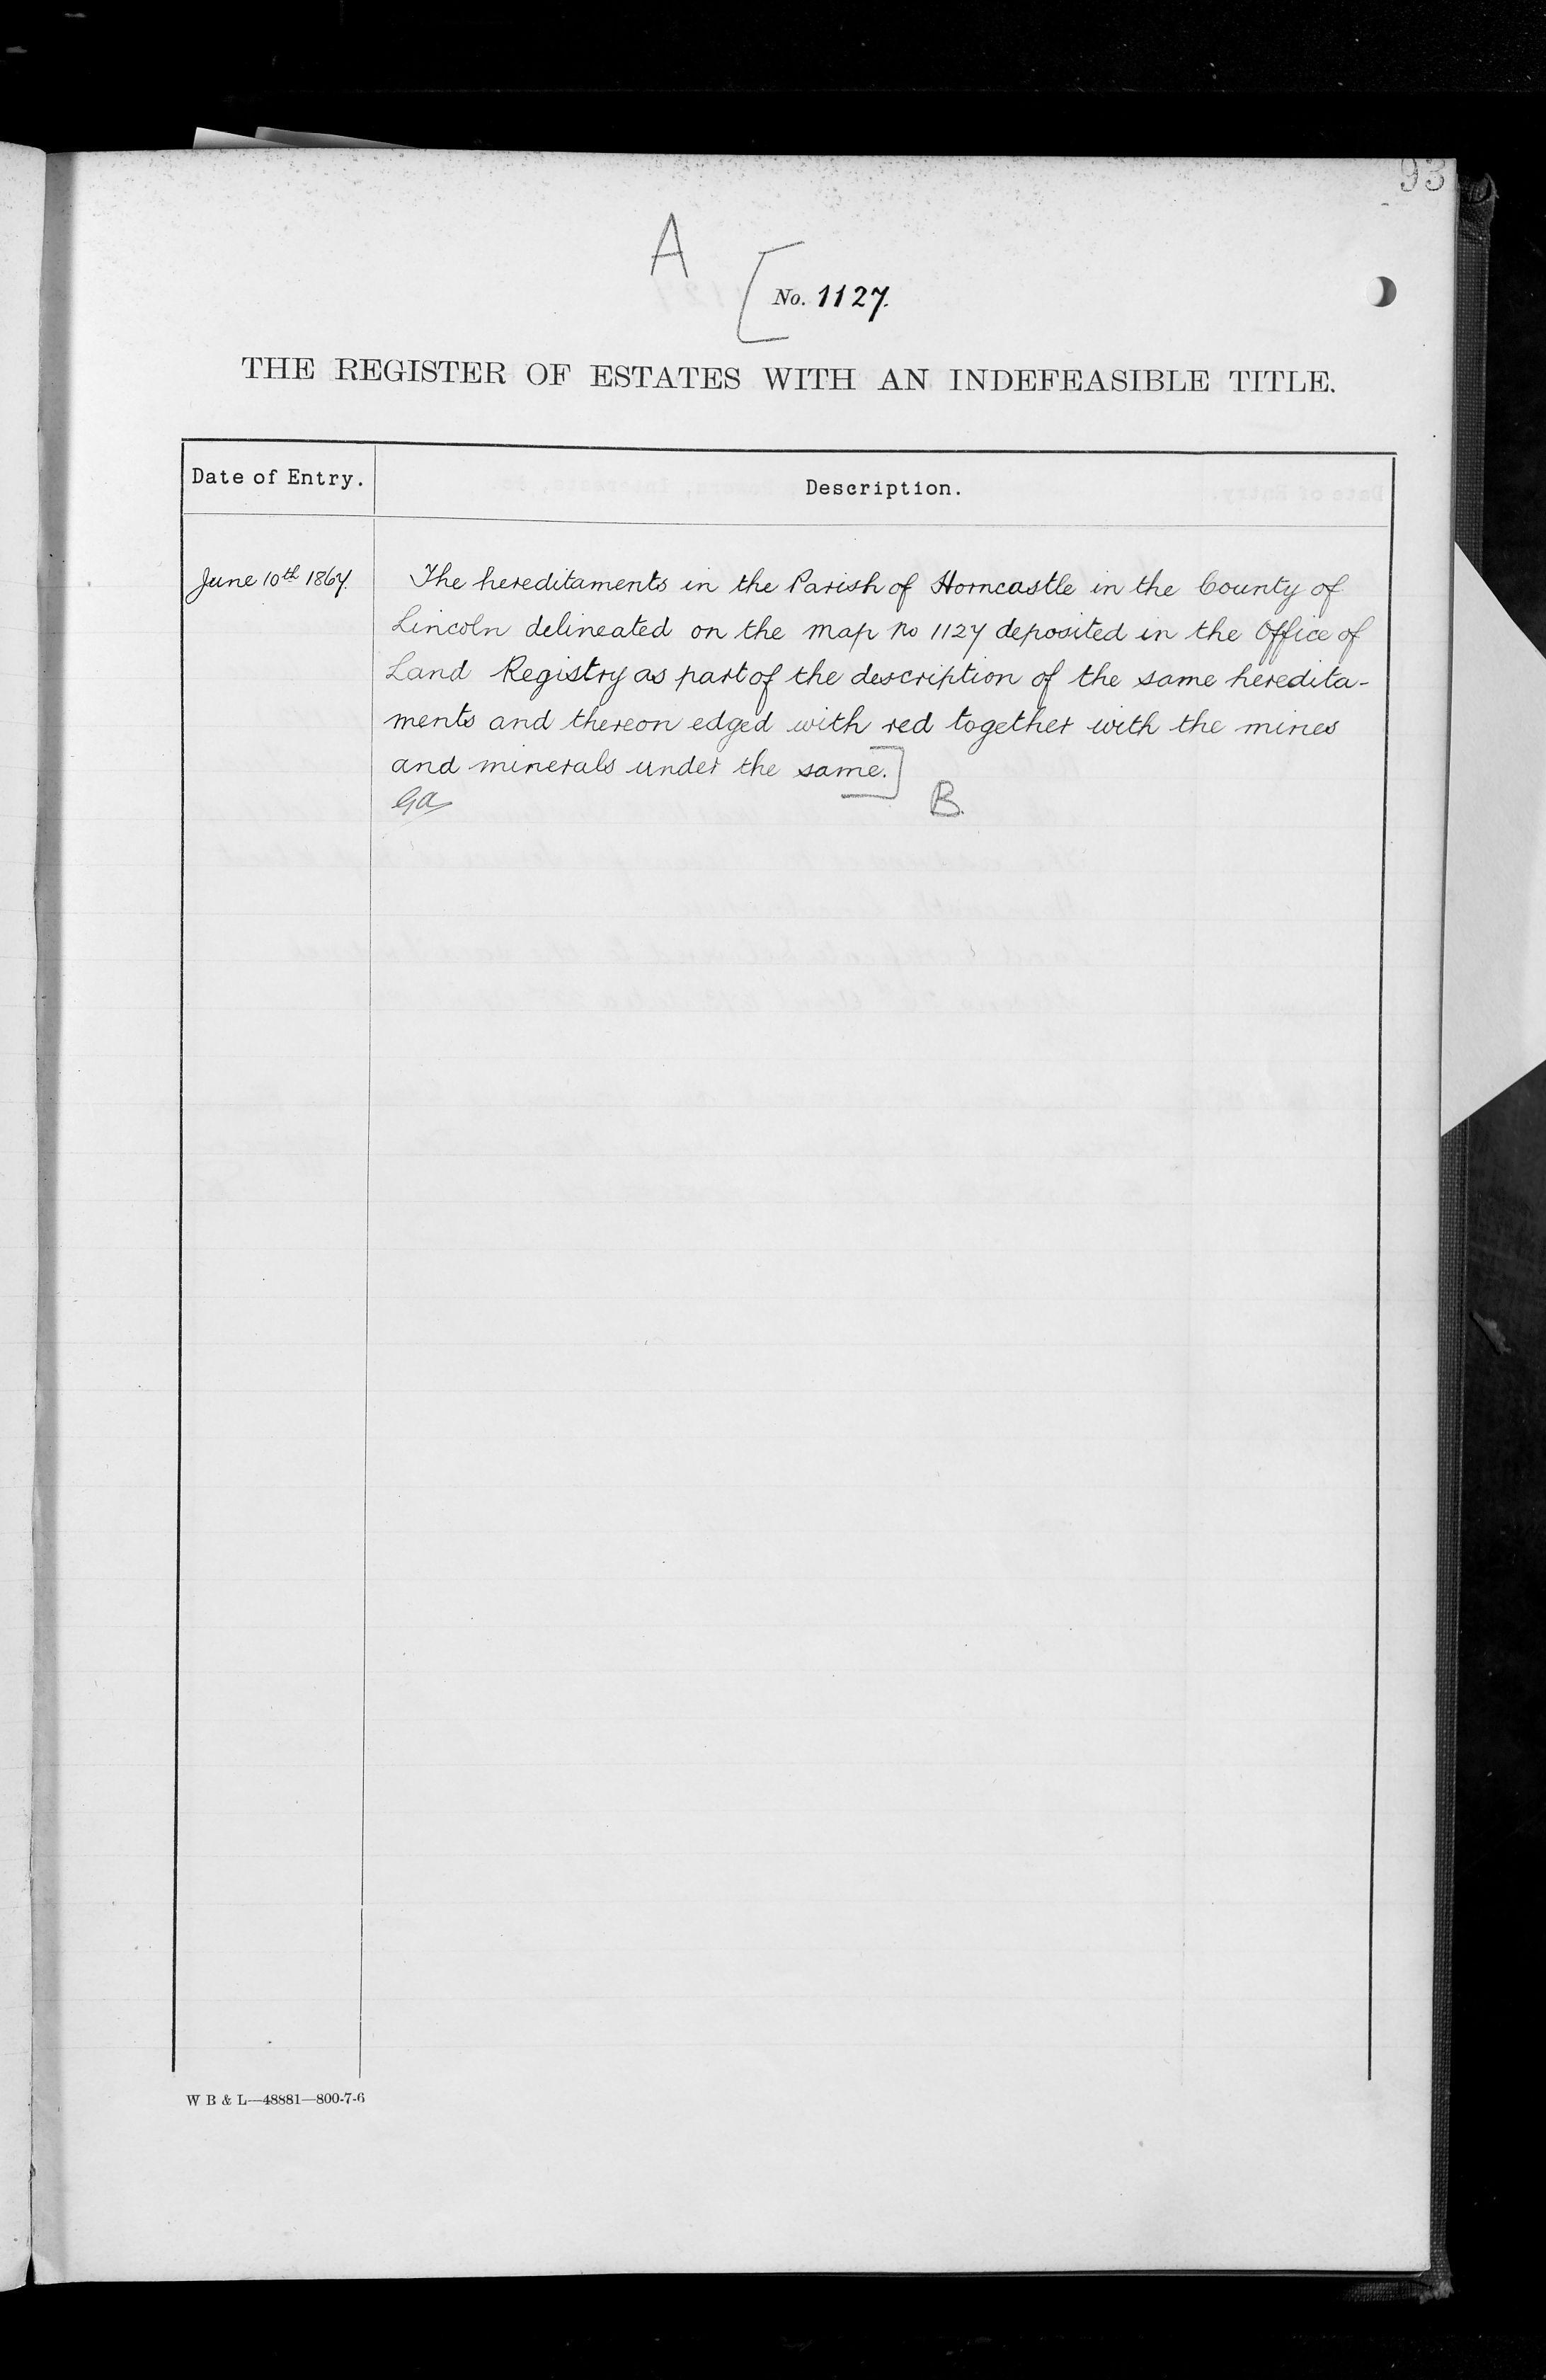 93
A
[No. 1127.
THE REGISTER OF ESTATES WITH AN INDEFEASIBLE TITLE.
Date of Entry.
Description.
June 10th 1867.
The hereditaments in the Parish of Horncastle in the County of
Lincoln delineated on the map No 1127 deposited in the Office of
Land Registry as part of the description of the same heredita-
ments and thereon edged with red together with the mines
and minerals under the same.]
GA
B.
W B & L—48881—800-7-6